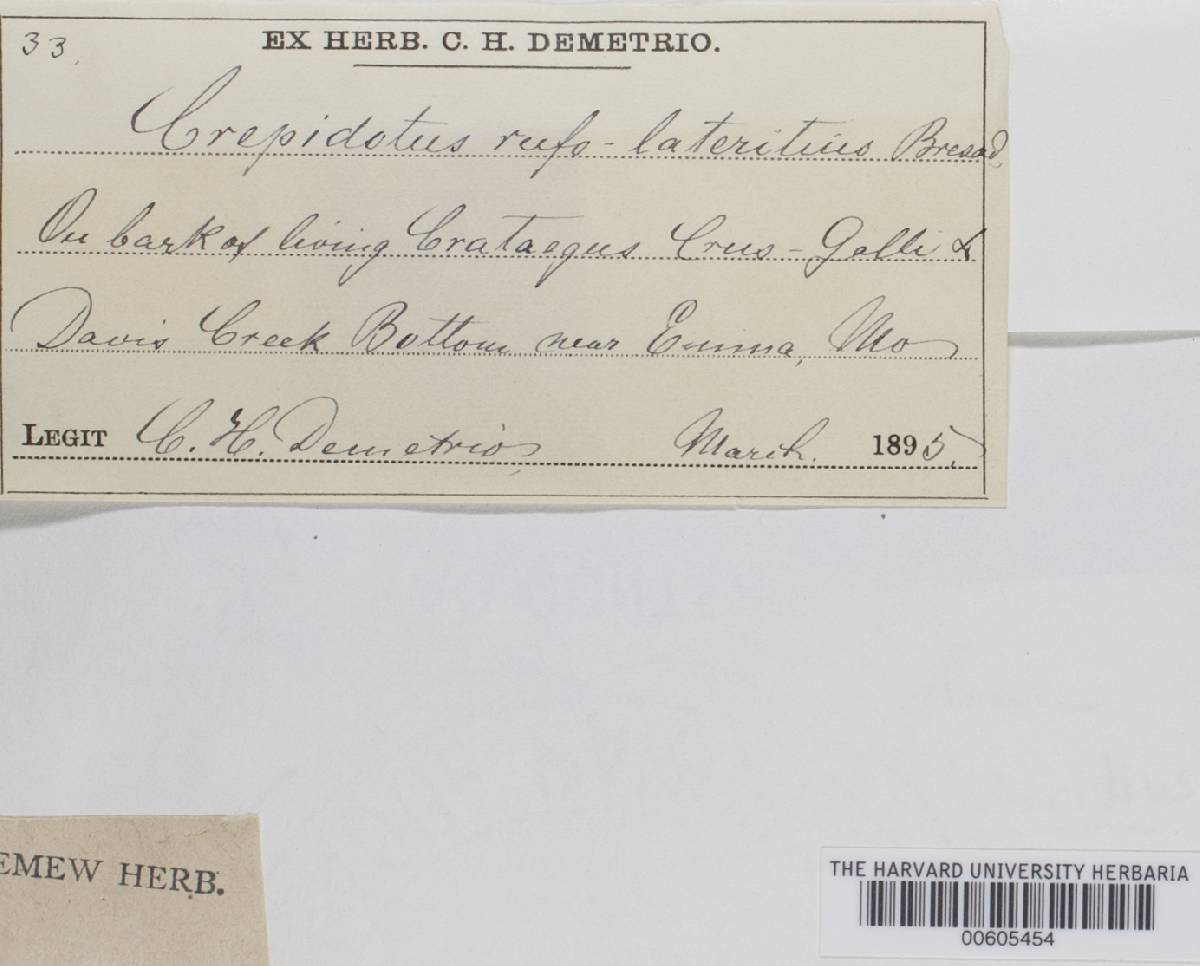 33.
EX HERB. C. H. DEMETRIO.
Crepidotus rufo-lateritius Bresad.
On bark of living Crataegus Crus-Galli L
Davis Creek Bottom near Emma, Mo
LEGIT C. H. Demetrio, March. 1895.
EMEW HERB.
THE HARVARD UNIVERSITY HERBARIA
00605454